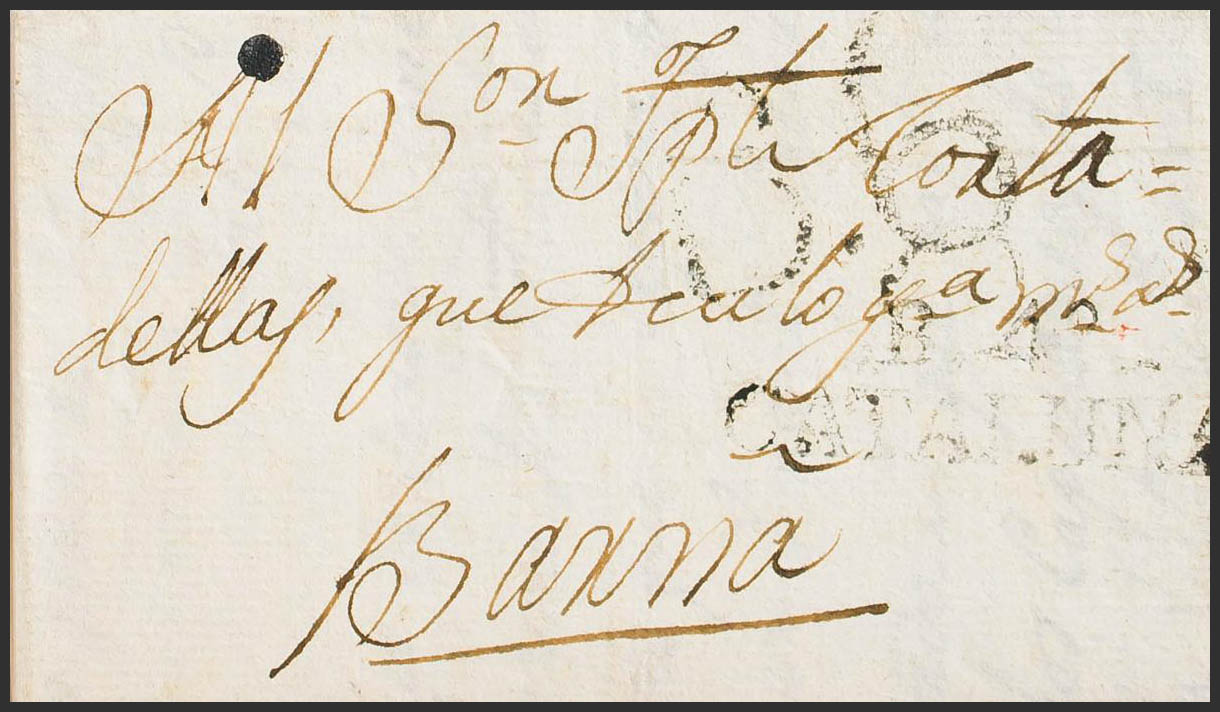 Al Sor Jph Corta=
dellas, que Dios lo gue a m.s a.s
a
Barna
B.4
CATALUÑA